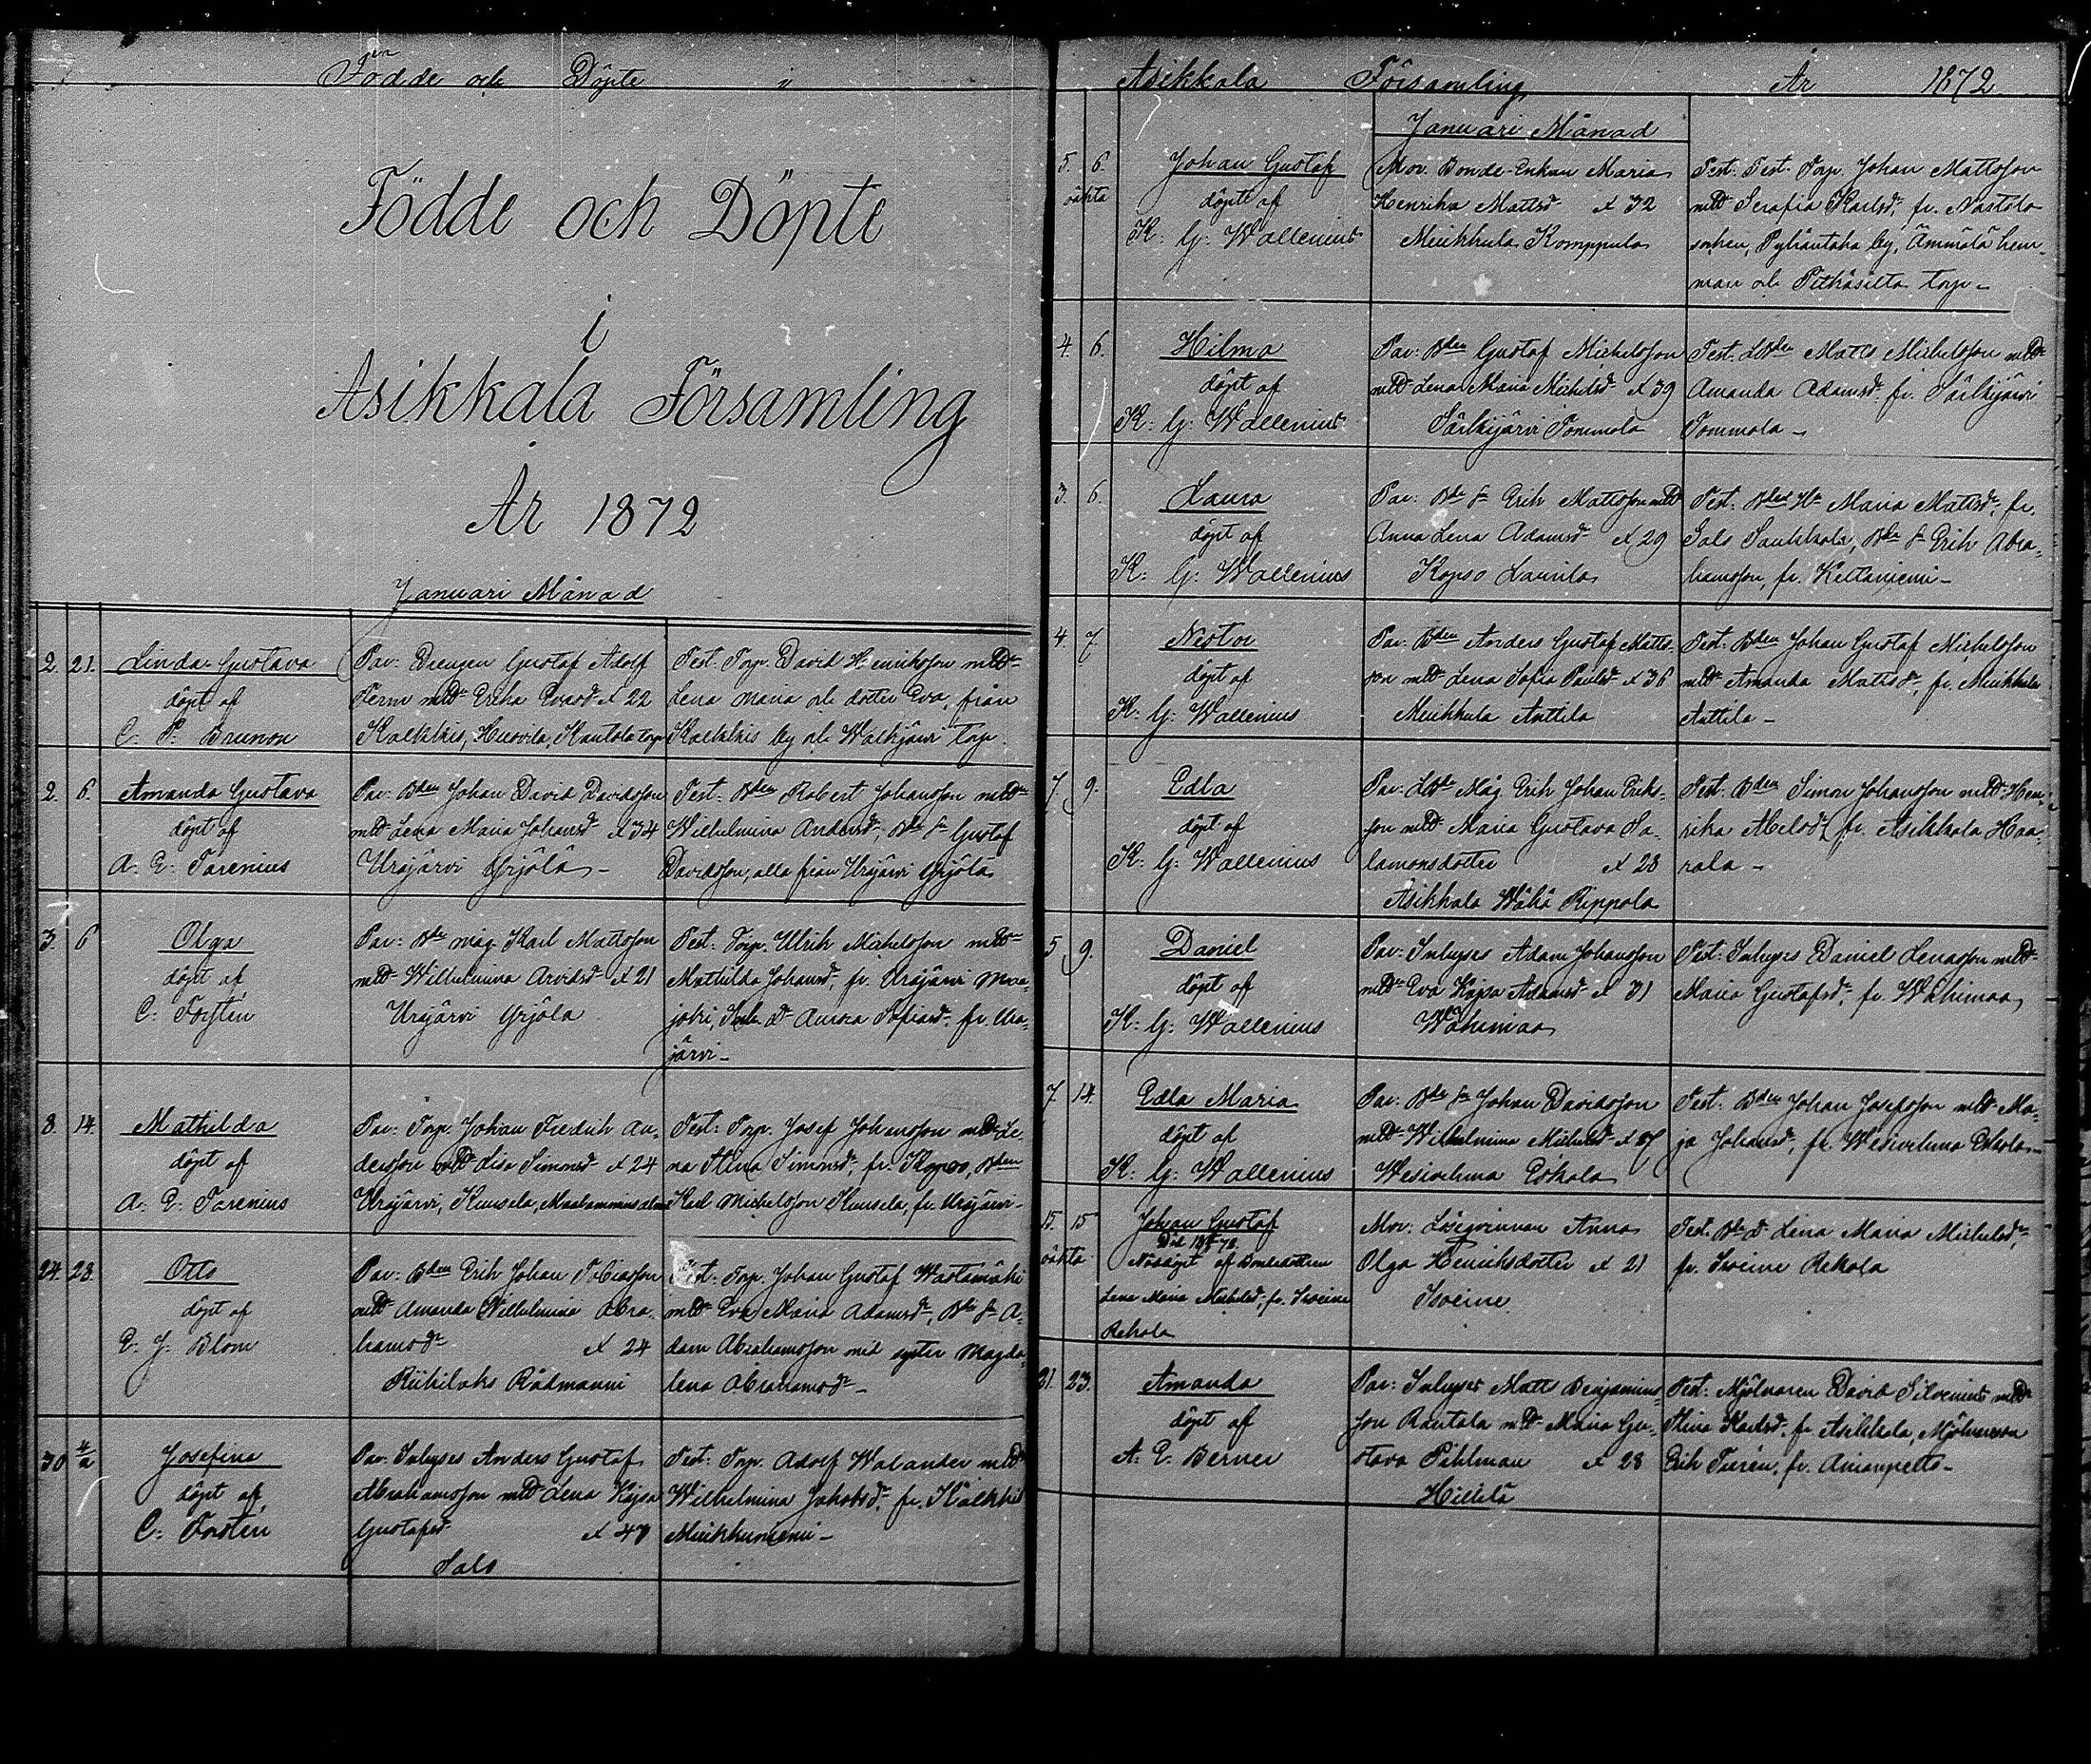 Födde och Döpte i
Födde och Döpte
i
Asikkala Församling
År 1872
Januari Månad
2. 21. Linda Gustava
döpt af
C. P. Brunou
Par: Drengen Gustaf Adolf
Ferm m. Erika Evasd. Æ 22
Kalkkis, Herovila, Kantola torp
Test. Torp. David Henriksson m.
Lena Maria och dotter Eva, från
Kalkkis by och Walkjärvi torp.
2. 6. Amanda Gustava
döpt af
A. E. Forenius
Par: Bden Johan David Davidsson
m. Lena Maria Johansd. Æ 34
Urajärvi Yrjölä -
Test: Bden Robert Johansson m.
Wilhelmina Andersd., Bde S. Gustaf
Davidsson, alla från Urajärvi Yrjölä
3. 6 Olga
döpt af
C: Forstén
Par: Bde måg Karl Mattsson
m. Wilhelmina Arvidsd. Æ 21
Urajärvi Yrjölä
Test: Torp. Ulrik Michelsson m.
Mathilda Johansd., fr. Urajärvi Maa-
joki, Inh. D. Aurora Sofiasd. fr. Ura-
järvi -
8. 14. Mathilda
döpt af
A. E. Forenius
Par: Torp. Johan Fredrik An-
dersson m. Lisa Simonsd. Æ 24
Urajärvi, Kunsela,
Test: Torp. Josef Johansson m. Le-
na Stina Simonsd., fr. Kopso, Bden
Karl Michelsson Kunsela, fr. Urajärvi -
24. 28. Otto
döpt af
E. J. Blom
Par: Bden Erik Johan Tobiasson
m. Amanda Wilhelmina Abra-
hamsdr Æ 24
Riihilaks Rådmanni
Test: Torp. Johan Gustaf Wastamäki
m. Eva Maria Adamsdr., Bde S. A-
dam Abrahamsson med syster Magda-
lena Abrahamsdr -
30 4/2 Josefina
döpt af
C: Forstén
Par. Inhyses Anders Gustaf
Abrahamsson m. Lena Kajsa
Gustafsd. Æ 47
Sals
Test: Torp. Adolf Walander m.
Wilhelmina Jakobsd. fr. Kalkkis
Miekkuniemi -
Asikkala Församling År 1872.
Januari Månad
5. 6. Johan Gustaf
oäkta döpt af
K: G: Wallenius
Mor. Bonde-Enkan Maria
Henrika Mattsd. Æ 32
Meikkula Komppula
Test: Test. Torp. Johan Mattsson
m. Serafia Karlsd., fr. Nastola
socken, Pyhäntaka by, Ämmälä hem-
man och Pitkäsilta torp -
4. 6. Hilma
döpt af
K: G: Wallenius
Par: Bden Gustaf Michelsson
m. Lena Maria Michelsd. Æ 39
Särkijärvi Tommola
Test. Bden Matts Michelsson m.
Amanda Adamsd. fr. Särkijärvi
Tommola -
3. 6. Laura
döpt af
K: G: Wallenius
Par: Bde S. Erik Mattsson m.
Anna Lena Adamsd. Æ 29
Kopso Laurila
Test: Maria Mattsd., fr.
Sals Saukkola, Bde S. Erik Abra-
hamsson, fr. Keltaniemi -
4. 7. Nestor
döpt af
K: G: Wallenius
Par: Bden Anders Gustaf Matts-
son m. Lena Sofia Paulsd. Æ 36
Meikkula Anttila
Test: Bden Johan Gustaf Michelsson
m. Amanda Mattsd., fr. Meikkula
Anttila -
7. 9. Edla
döpt af
K: G: Wallenius
Par: Måg Erik Johan Eriks-
son m. Maria Gustava Sa-
lamonsdotter Æ 28
Asikkala Wähä Rippola
Test: Bden Simon Johansson m. Hen-
rika Abelsd. fr. Asikkala Haa-
rala -
5 9. Daniel
döpt af
K: G: Wallenius
Par: Inhyses Adam Johansson
m. Eva Kajsa Adamsd. Æ 31
Wähimaa
Test: Inhyses Daniel Lenasson m.
Maria Gustafsd., fr. Wähimaa
7. 14. Edla Maria
döpt af
K: G: Wallenius
Par: Bde S. Johan Davidsson
m. Wilhelmina Michelsd. Æ
Wesivehma Eskola
Test: Bden Johan Josefsson m. Ma-
ja Johansd., fr. Wesivehma Eskola -
15. 15 Johan Gustaf
oäkta
Nöddöpt af Bondedottren
Lena Maria Michelsd., fr. Iseine
Rekola
Mor: Löseqvinnan Anna
Olga Henriksdotter Æ 21
Iseine
Test: Bde D. Lena Maria Michelsd.,
fr. Iseine Rekola
21. 23. Amanda
döpt af
A. E. Berner
Par: Inhyses Matts Benjamins-
son Rautala m. Maria Gu-
stava Pihlman Æ 28
Hillilä
Test: Mjölnaren David Silvenius m.
Stina Karlsd. fr Asikkala, Mjölnareson
Erik Turén, fr. Anianpelto -